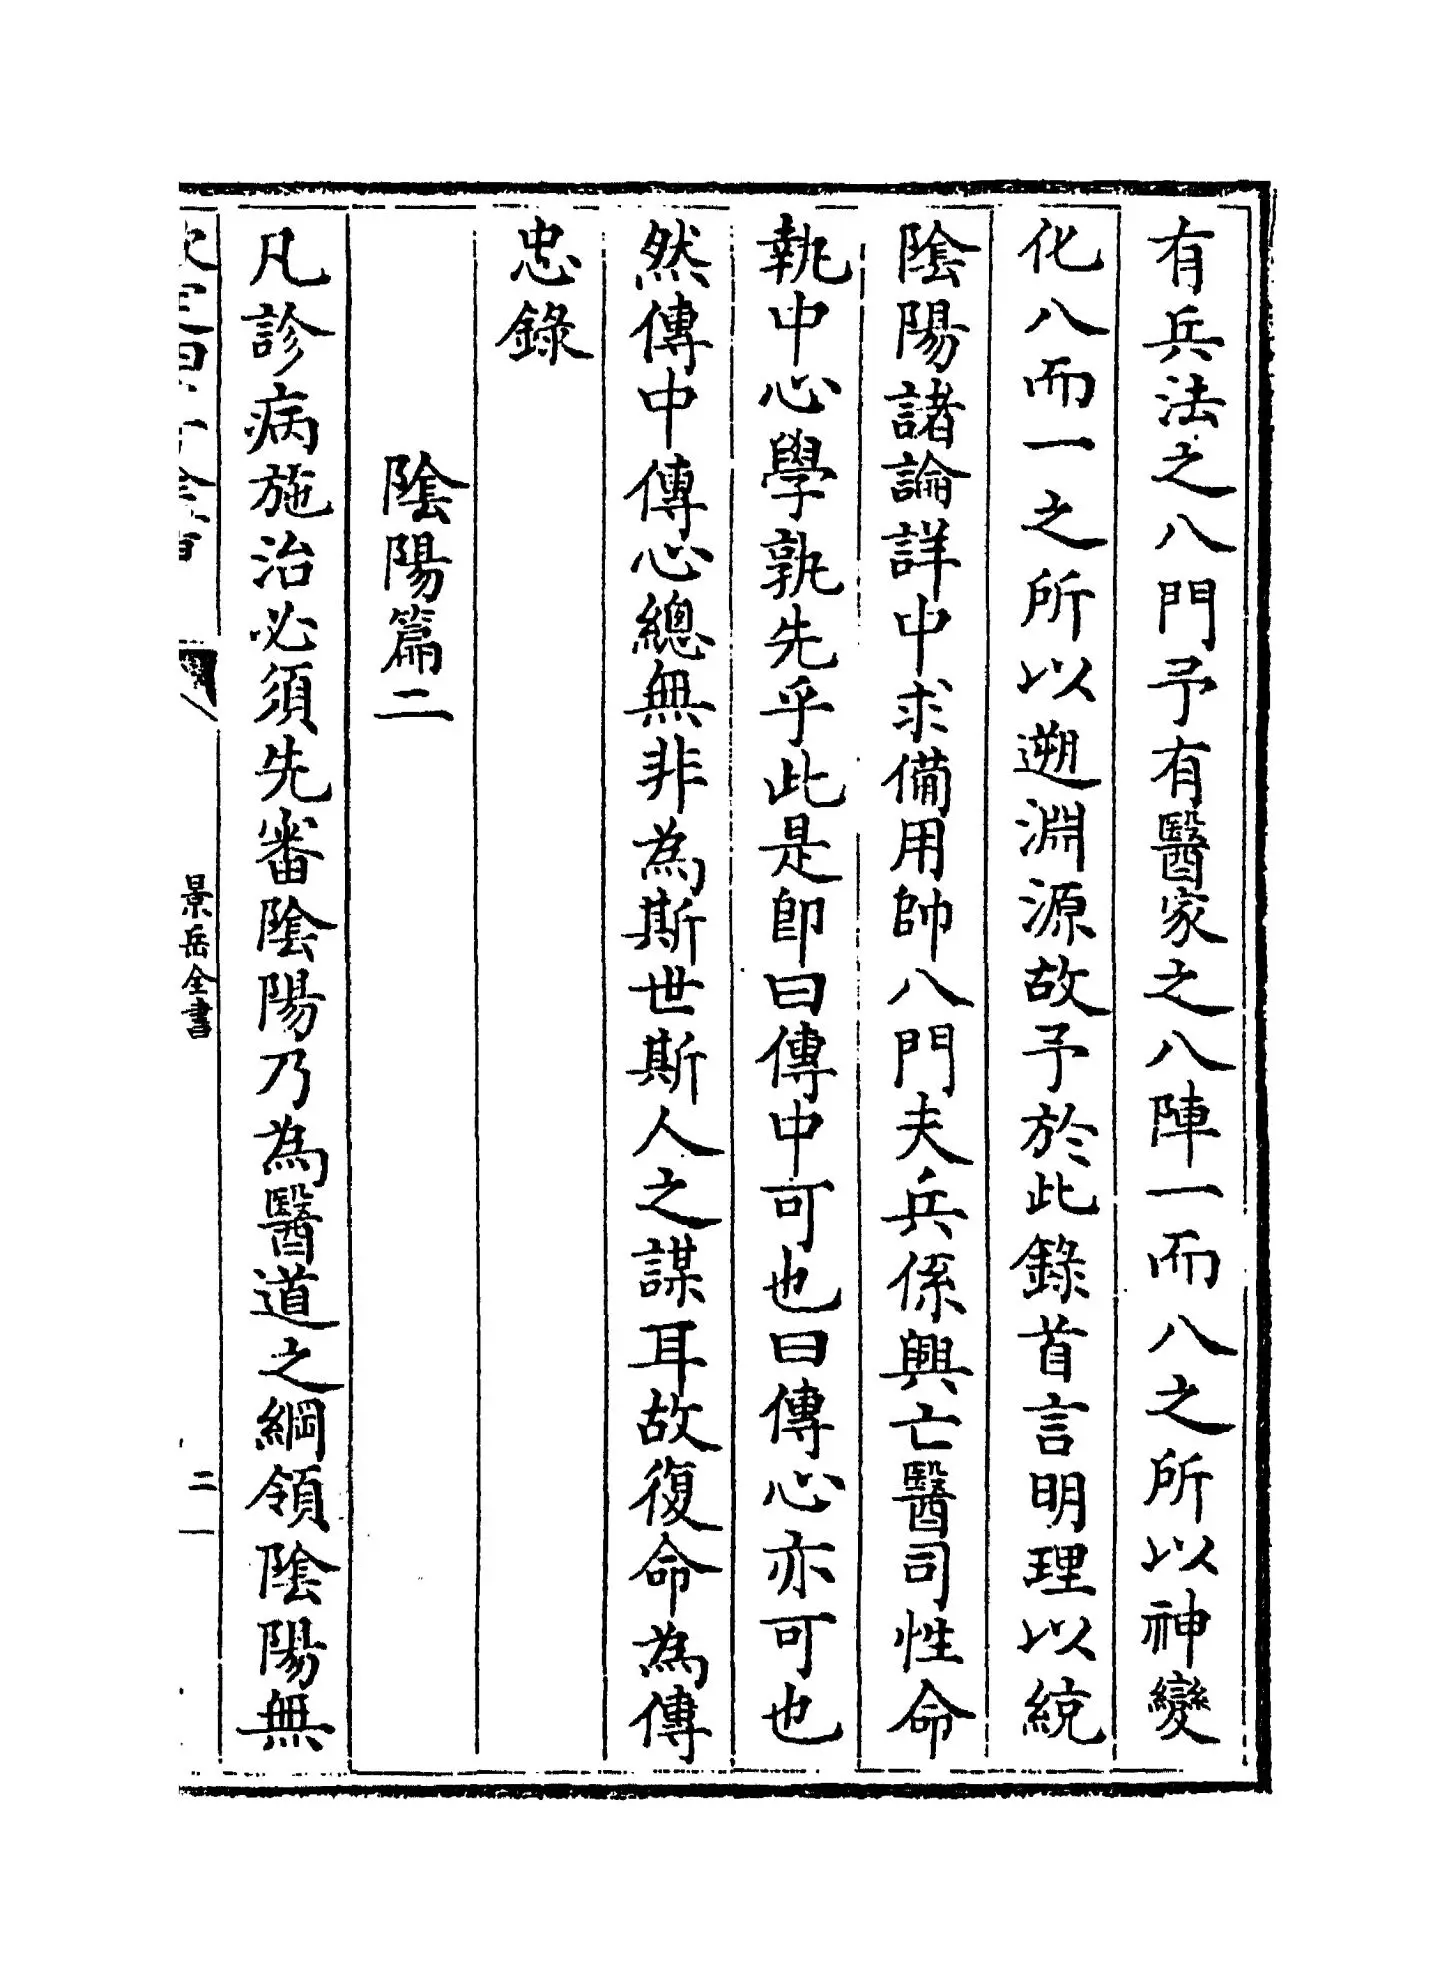 有兵法之八門予有醫家之八陣一而八之所以神變
化八而一之所以遡淵源故予於此錄首言明理以統
陰陽諸論詳中求備用帥八門夫兵係興亡醫司性命
執中心學孰先乎此是即曰傳中可也曰傳心亦可也
然傳中傳心總無非為斯世斯人之謀耳故復命為傳
忠錄
陰陽篇二
凡診病施治必須先審陰陽乃為醫道之綱領陰陽無
景岳全書
二